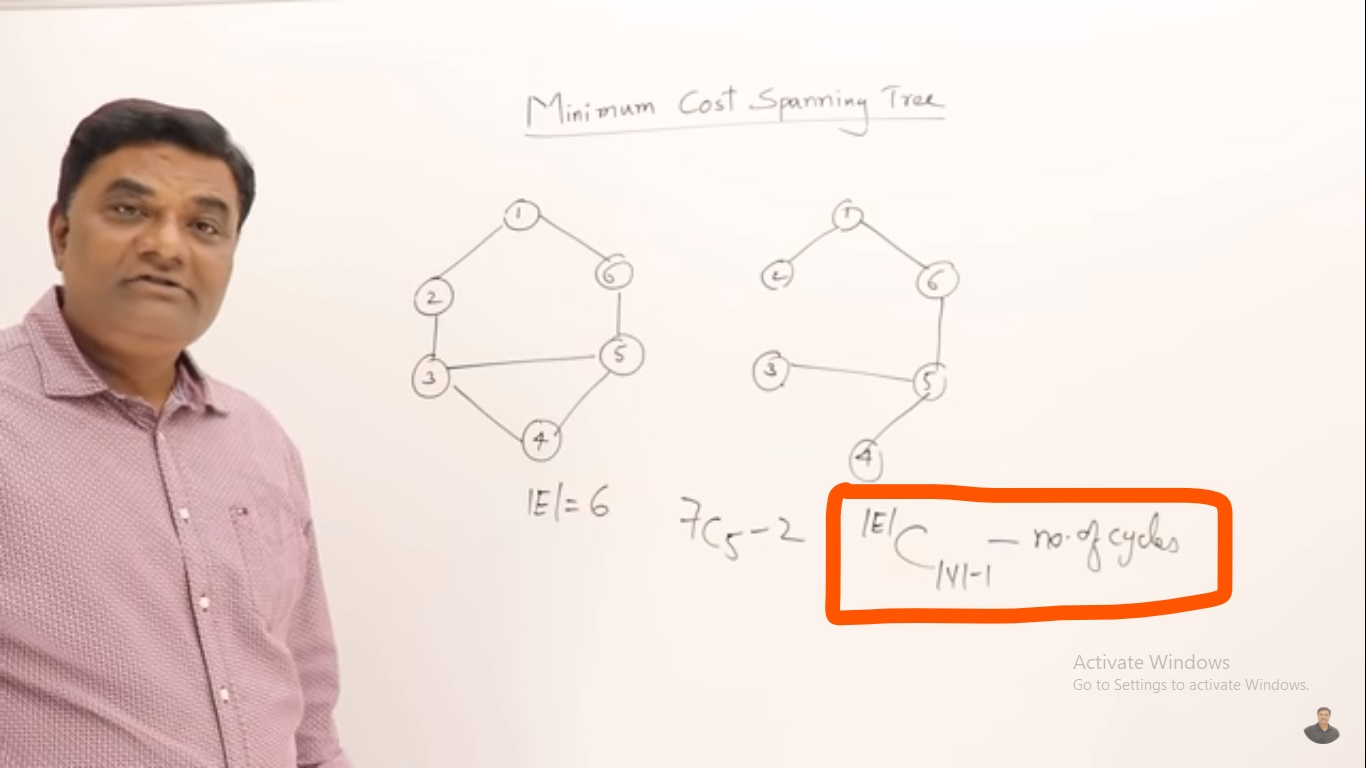 Minimum Cost Spanning Tree
1
2
6
3
5
4
1
2
6
3
5
4
|E|=6
7C5-2
|E|C|V|-1 - no. of cycles
Activate Windows
Go to Settings to activate Windows.